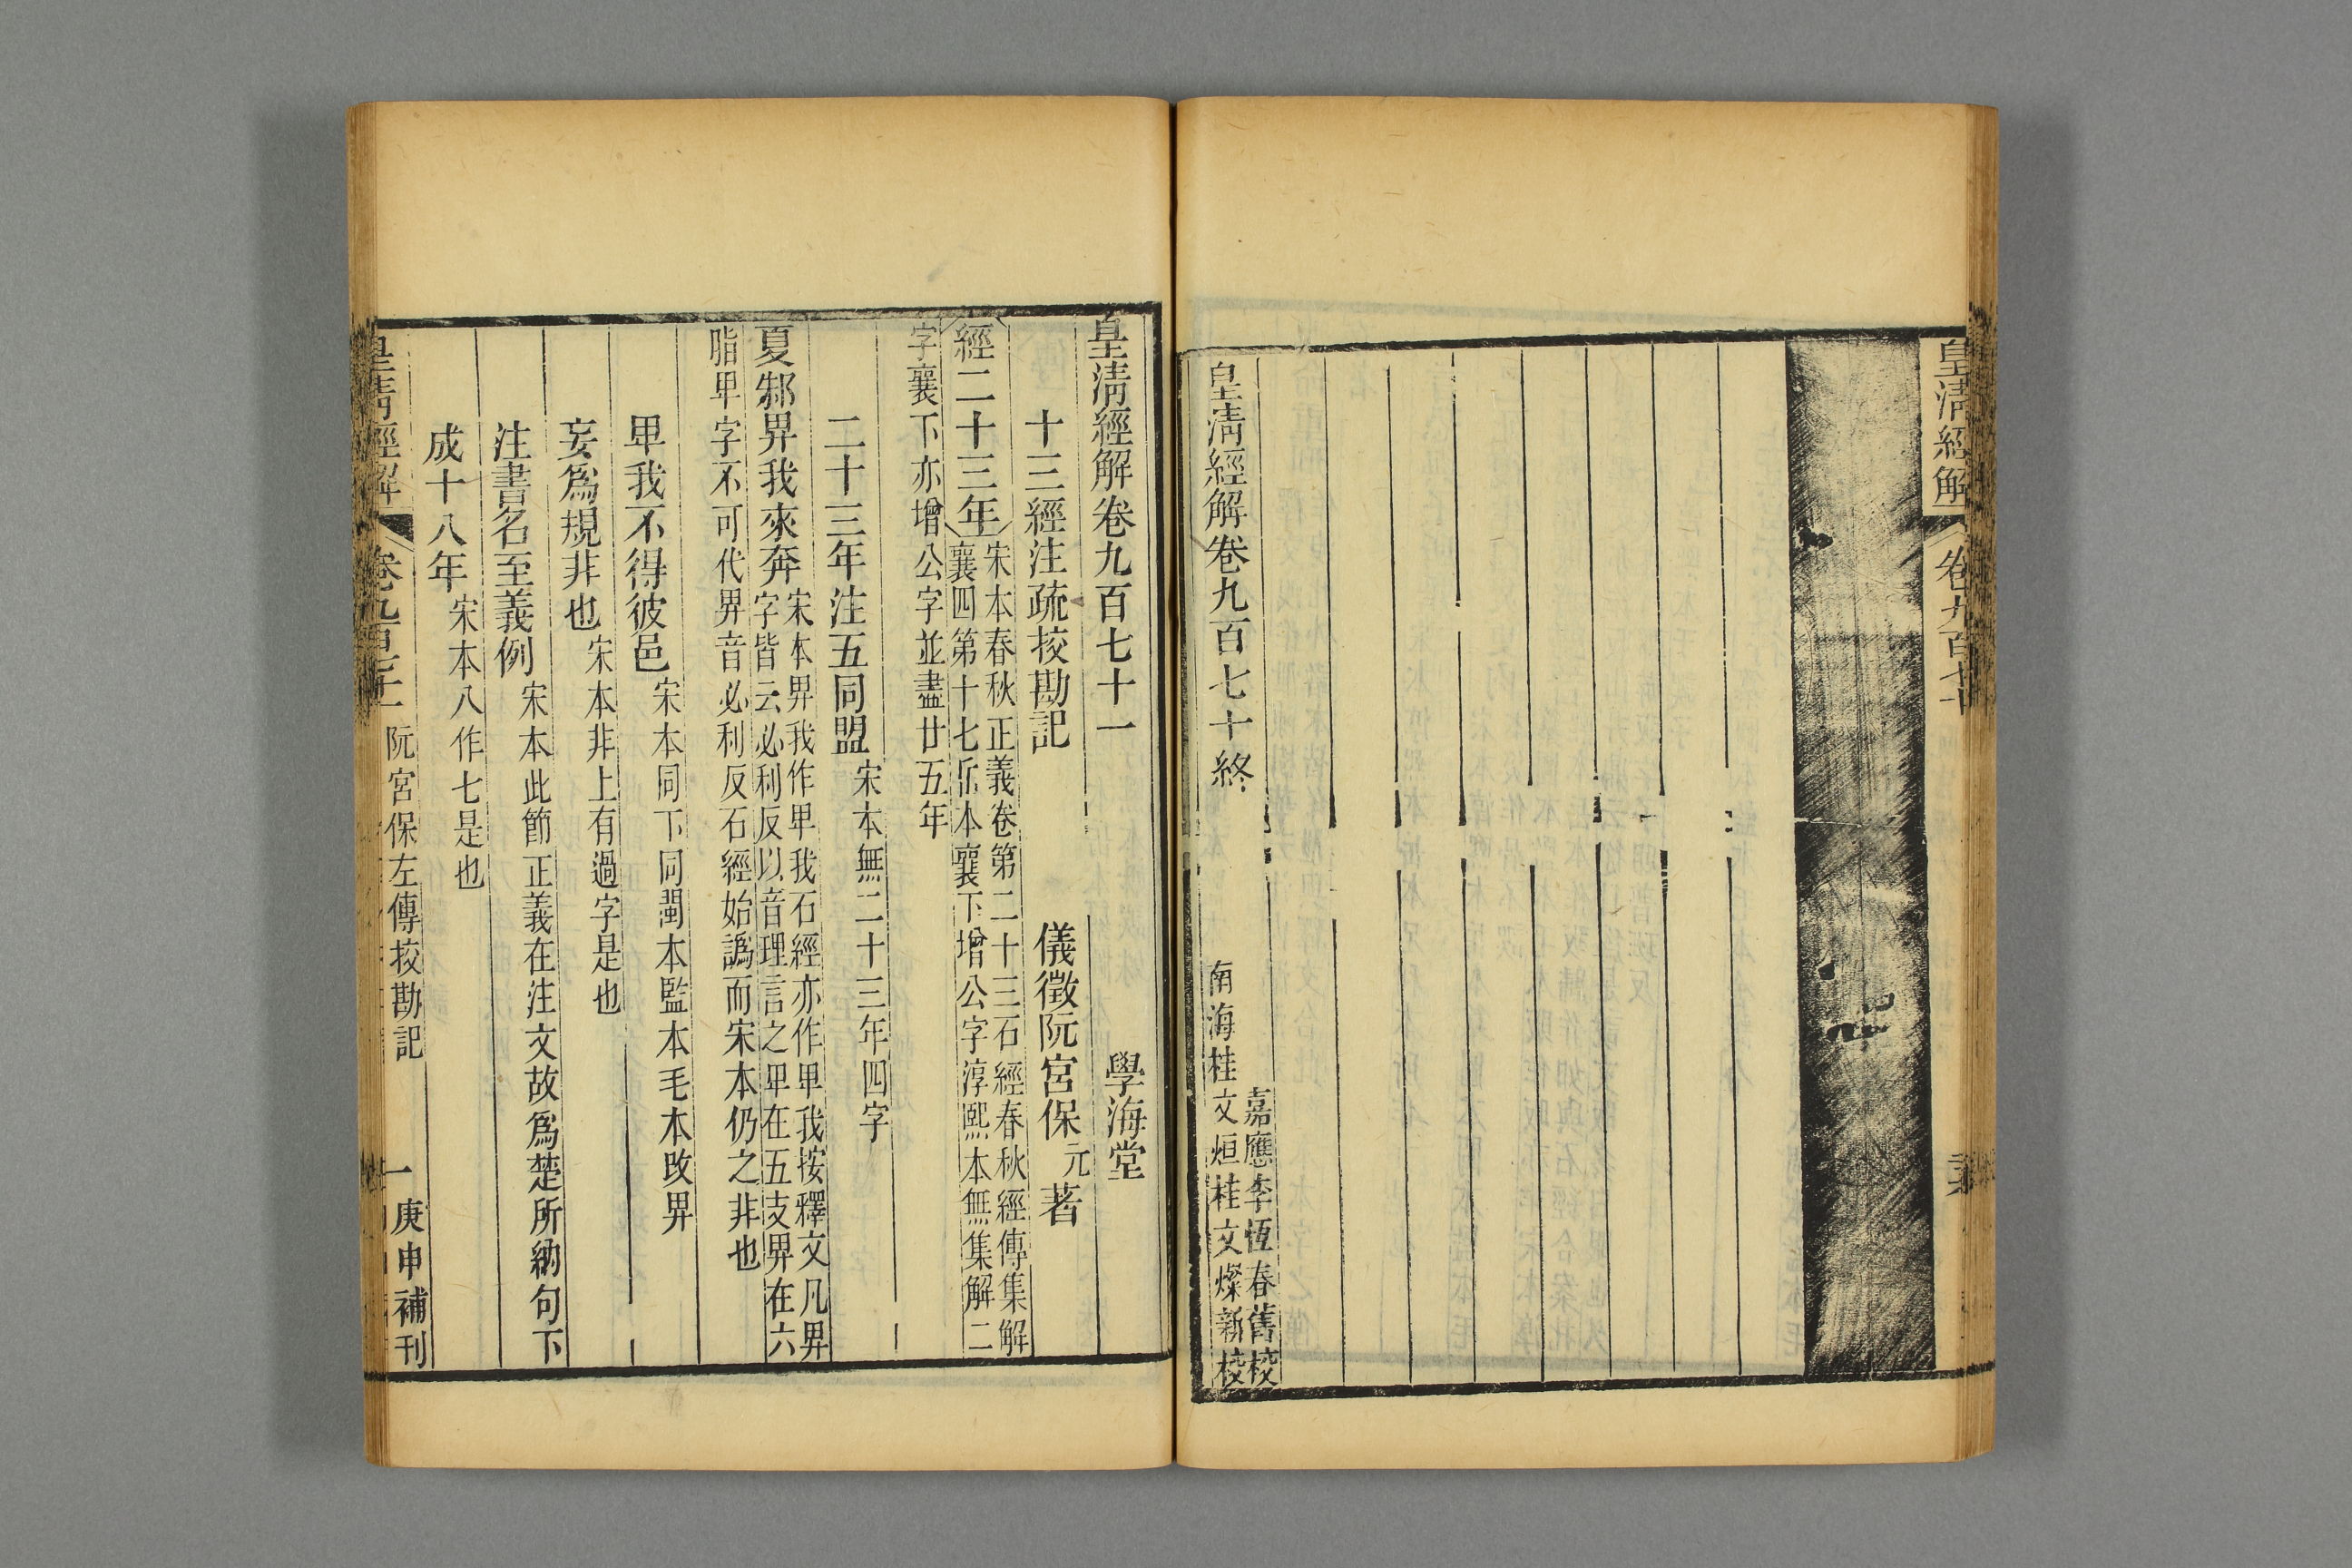 皇清經解 卷九百七十
皇清經解卷九百七十終
嘉應李恆春舊校
南海桂文烜桂文燦新校
皇清經解卷九百七十一
學海堂
十三經注疏挍勘記
儀徵阮宮保元著
經二十三年
宋本春秋正義卷第二十三石經春秋經傳集解
襄四第十七岳本襄下增公字淳熙本無集解二
字襄下亦增公字並盡廿五年
二十三年注五同盟 宋本無二十三年四字
夏邾畀我來奔
宋本畀我作卑我石經亦作卑我按釋文凡畀
字皆云必利反以音理言之卑在五支畀在六
脂卑字不可代畀音必利反石經始譌而宋本仍之非也
卑我不得彼邑 宋本同下同閩本監本毛本改畀
妄爲規非也 宋本非上有過字是也
注書名至義例 宋本此節正義在注文故爲楚所納句下
成十八年 宋本八作七是也
皇清經解 卷九百七十一 阮宮保左傳挍勘記 一 庚申補刊